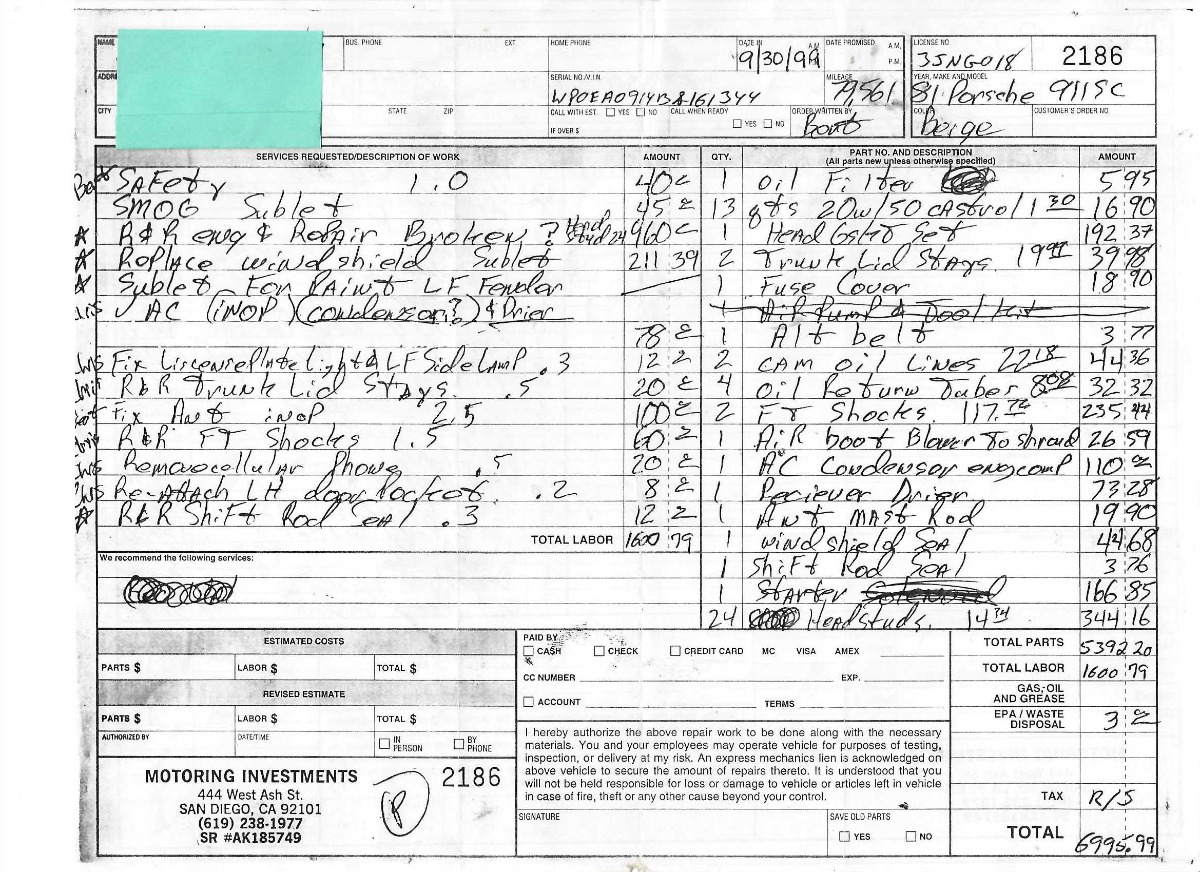 NAME BUS. PHONE EXT. HOME PHONE DATE IN A.M. DATE PROMISED A.M. P.M. LICENSE NO. 2186
9/30/99 3SNG018
ADDR SERIAL NO./V.I.N. MILEAGE YEAR, MAKE AND MODEL
79,561 81 Porsche 911SC
CITY STATE ZIP CALL WITH EST. YES NO CALL WHEN READY ORDER WRITTEN BY COLOR CUSTOMER'S ORDER NO.
IF OVER $ YES NO Beige
SERVICES REQUESTED/DESCRIPTION OF WORK AMOUNT QTY. PART NO. AND DESCRIPTION AMOUNT
(All parts new unless otherwise specified)
SAFety 1.0 40 1 oil Filter 5 95
SMOG Sublet 45 13 qts 20w/50 CAStrol 1 30 16 90
R&R eng & Repair Broken ? Head Stud 24 960 1 Head Gsket Set 192 37
Replace windshield Sublet 211 39 2 Trunk Lid Stays 39 98
Sublet For Paint LF Fender 1 Fuse Cover 18 90
AC (inop) (condensor?) & Drier 1 Air Pump & Tool Kit
78 1 Alt belt 3 77
LF Side Lamp .3 12 2 CAM oil Lines 22 18 44 36
R&R Trunk Lid Stays .5 20 4 Oil Return Tubes 8 08 32 32
Fix Ant inop 2.5 100 2 FT Shocks 117.72 235 44
R&R FT Shocks 1.5 60 1 Air boot Blower To shroud 26 59
Remove cellular Phone .5 20 1 AC Condensor eng comp 110
Re-Attach LH door Pocket .2 8 1 Reciever Drier 73 28
R&R Shift Rod Seal .3 12 1 Ant MAST Rod 19 90
TOTAL LABOR 1600 79 1 windshield Seal 44 68
We recommend the following services: 1 Shift Rod Seal 3 76
1 Starter 166 85
24 Headstuds 14 34 344 16
ESTIMATED COSTS PAID BY TOTAL PARTS 5392 20
CASH CHECK CREDIT CARD MC VISA AMEX
PARTS $ LABOR $ TOTAL $ TOTAL LABOR 1600 79
CC NUMBER EXP.
REVISED ESTIMATE GAS, OIL AND GREASE
ACCOUNT TERMS
PARTS $ LABOR $ TOTAL $ EPA / WASTE DISPOSAL 3
AUTHORIZED BY DATE/TIME IN PERSON BY PHONE
I hereby authorize the above repair work to be done along with the necessary
materials. You and your employees may operate vehicle for purposes of testing,
inspection, or delivery at my risk. An express mechanics lien is acknowledged on
above vehicle to secure the amount of repairs thereto. It is understood that you
will not be held responsible for loss or damage to vehicle or articles left in vehicle
in case of fire, theft or any other cause beyond your control.
MOTORING INVESTMENTS 2186
444 West Ash St.
SAN DIEGO, CA 92101
(619) 238-1977
SR #AK185749
P
SIGNATURE SAVE OLD PARTS
YES NO
TAX R/S
TOTAL 6995.99